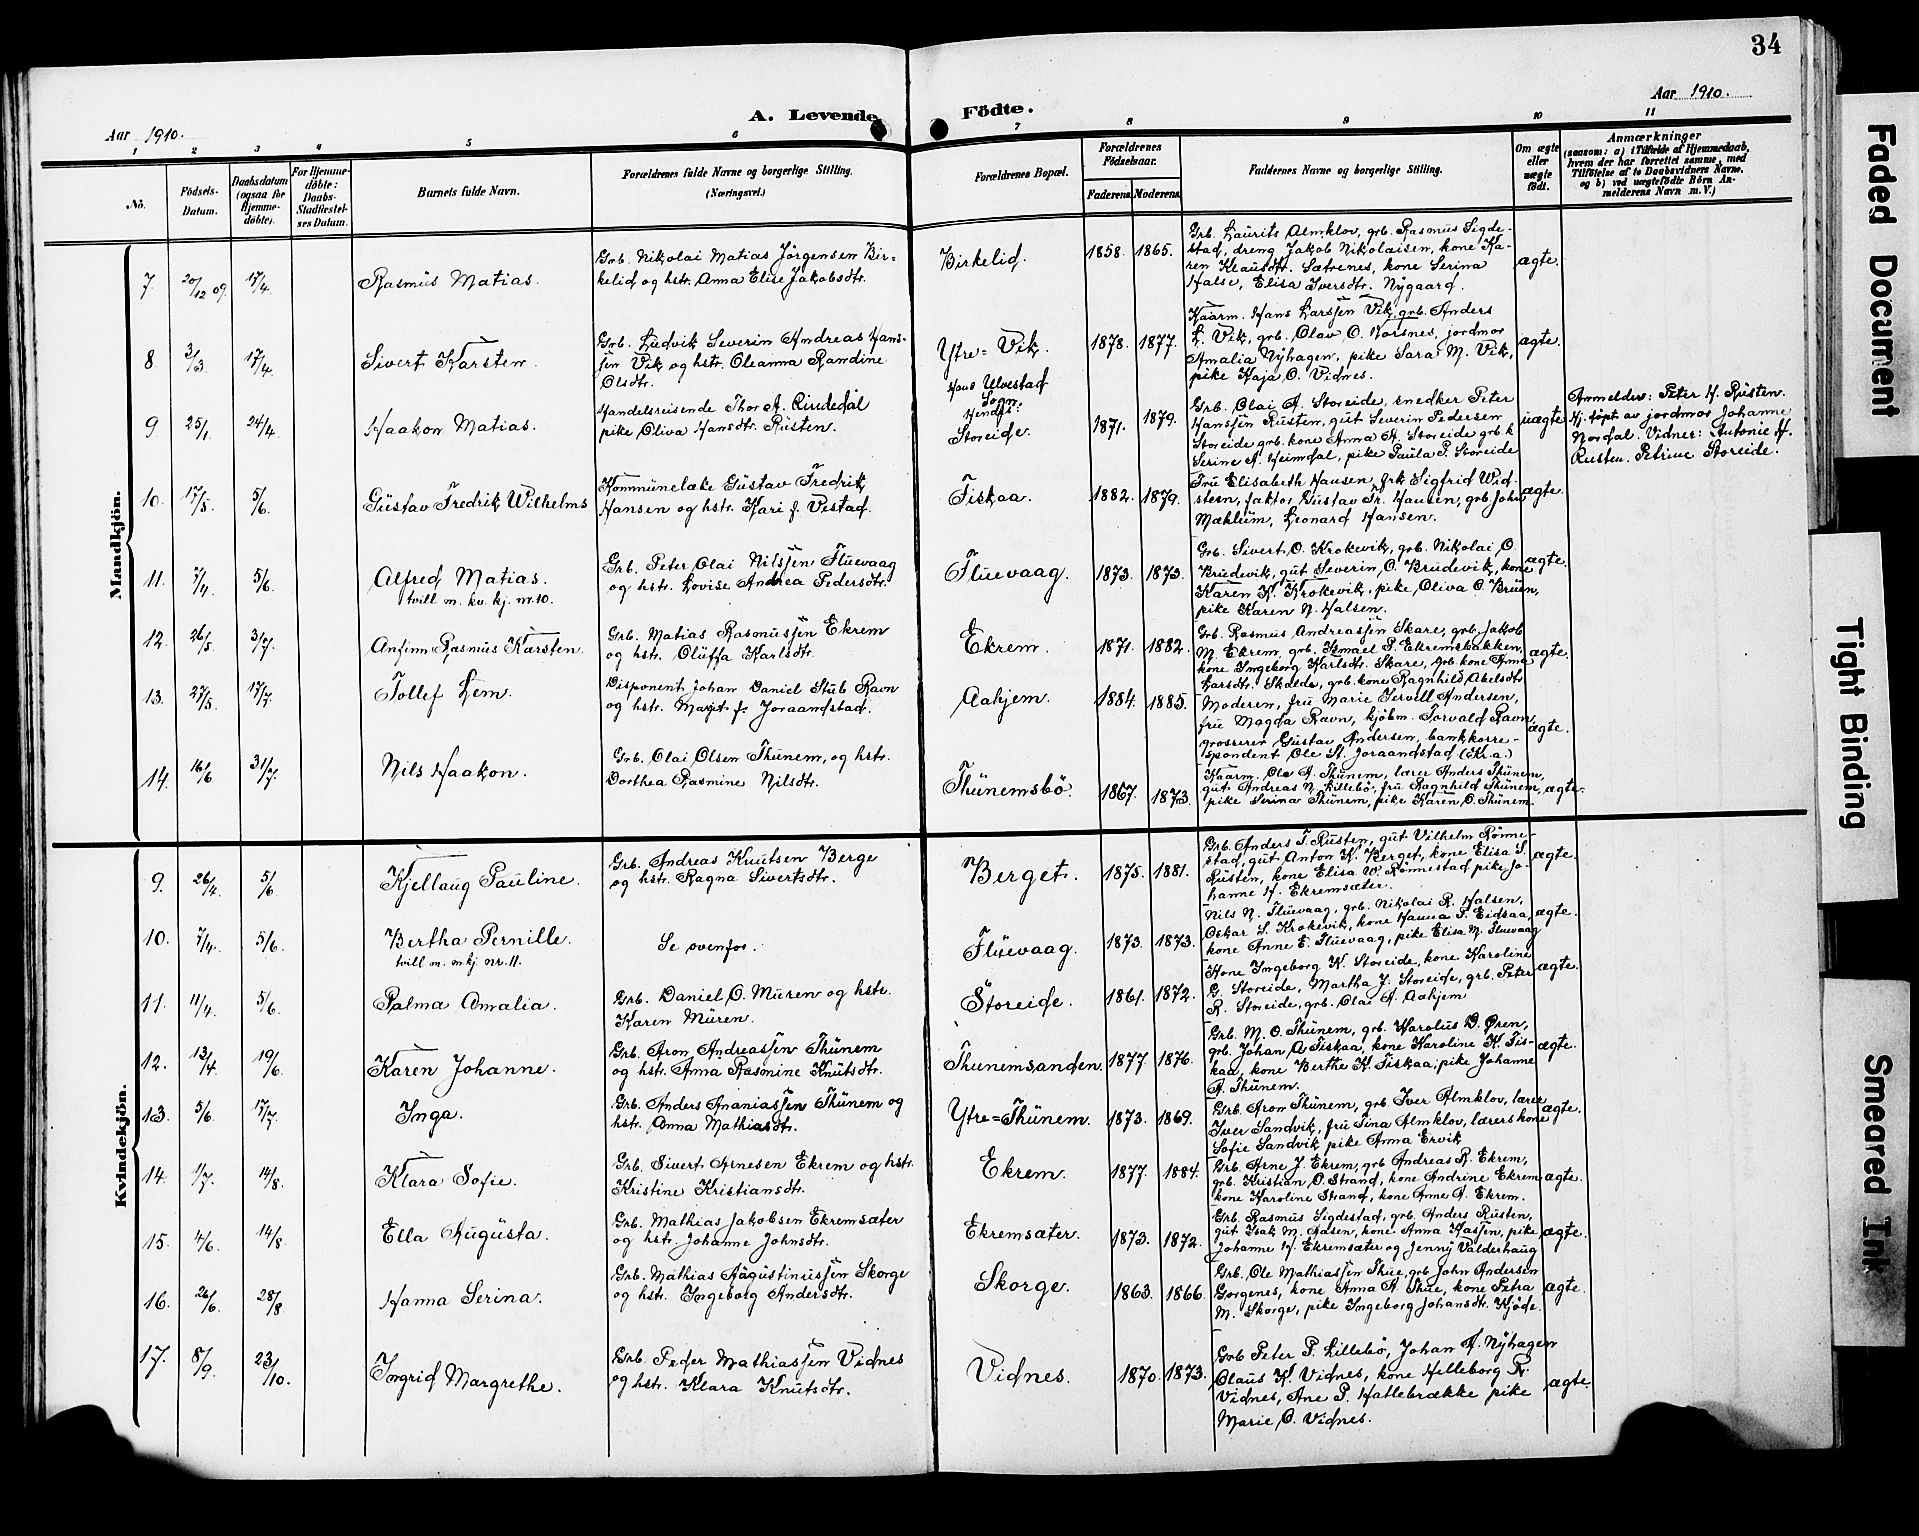 34
Aar 1910.
A. Levende
Födte.
Aar 1910.
1 2 3 4 5 6 7 8 9 10 11
No.
Födsels-
Datum.
Daabsdatum
(ogsaa för
Hjemme-
döbte).
For Hjemme-
döbte:
Daabs-
Stadfæstel-
ses Datum.
Barnets fulde Navn.
Forældrenes fulde Navne og borgerlige Stilling.
(Næringsvei.)
Forældrenes Bopæl.
Forældrenes
Födselsaar.
Faderens.
Moderens.
Faddernes Navne og borgerlige Stilling.
Om ægte
eller
uægte
födt.
Anmærkninger
(saasom: a) i Tilfælde af Hjemmedaab,
hvem der har forrettet samme, med
Tilföielse af to Daabsvidners Navne,
og b) ved uægtefödte Börn An-
melderens Navn m. V.)
Mandkjön.
7. 20/12 09. 17/4 Rasmus Matias.
Grb. Nikolai Matias Jörgensen Bir-
kelid og hstr. Anna Elise Jakobsdtr.
Birkelid. 1858. 1865.
Grb. Laurits Almklov, grb. Rasmus Sigde-
stad, dreng Jakob Nikolaisen, kone Ka-
ren Klausdtr. Sætrenes, kone Serina
Halse, Elisa Iversdtr. Nygaard.
ægte.
8. 3/3. 17/4. Sivert Karsten.
Grb. Ludvik Severin Andreas Hans-
sen Vik og hstr. Oleanna Randine
Olsdtr.
Ytre=Vik. 1878. 1877.
Kaarm. Hans Larssen Vik, grb. Anders
L. Vik, grb. Olav O. Norsnes, jordmor
Amalia Nyhagen, pike Sara M. Vik,
pike Kaja O. Vidnes.
ægte.
9. 25/1. 24/4 Haakon Matias.
Handelsreisende Thor A. Rindedal
pike Oliva Hansdtr. Rusten.
Hans Ulvestad
Sogn.
Hendes:
Storeide. 1871. 1879.
Grb. Olai A. Storeide, snedker Peter
Hanssen Rusten, gut Severin Pedersen
Storeide grb. kone Anna A. Storeide grb. k
Serine A. Heimdal, pike Paula P. Storeide
uægte
Anmelder: Peter H. Rusten.
Hj. döpt av jordmor Johanne
Nordal. Vidner: Antonie H.
Rusten. Petrine Storeide.
10. 17/5. 5/6. Gustav Fredrik Wilhelms
Kommunelæke Gustav Fredrik
Hansen og hstr. Kari f. Vestad.
Fiskaa. 1882. 1879.
Fru Elisabeth Hansen, frk Sigfrid Wid-
steen, faktor Gustav Fr. Hansen, grb. John
Mæhlum, Leonard Hansen.
ægte.
11. 7/4. 5/6. Alfred Matias.
tvill m. kv. kj. nr. 10.
Grb. Peter Olai Nilssen Fluevaag
og hstr. Lovise Andrea Pedersdtr.
Fluevaag. 1873. 1873.
Grb. Sivert O. Krokevik, grb. Nikolai O.
Brudevik, gut Severin O. Brudevik, kone
Karen K. Krokevik, pike Oliva O. Bruen,
pike Karen N. Halsen.
ægte.
12. 26/5 3/7. Anfinn Rasmus Karsten.
Grb. Matias Rasmussen Ekrem
og hstr. Oluffa Karlsdtr.
Ekrem. 1871. 1882.
Grb. Rasmus Andreassen Skare, grb. Jakob
M. Ekrem, grb. Ismael P. Ekremsbakken,
kone Ingeborg Karlsdtr. Skare, grb. kone Anna
Larsdtr. Skalde, grb. kone Ragnhild Abelsdtr
ægte.
13. 27/5. 17/7. Tollef Lem.
Disponent Johan Daniel Stub Ravn
og hstr. Margit f. Joraandstad.
Aahjem. 1884. 1885.
Moderen, fru Marie Servell Andersen,
fru Magda Ravn, kjöbm. Torvald Ravn,
grosserer Gustav Andersen, bankkorre-
spondent Ole St. Joraandstad (Kr.a.)
ægte.
14. 16/6 31/7. Nils Haakon.
Grb. Olai Olsen Thunem, og hstr.
Dorthea Rasmine Nilsdtr.
Thunemsbö. 1867. 1873.
Kaarm. Ole A. Thunem, lærer Anders Thunem,
gut Andreas N. Lillebö, fru Ragnhild Thunem,
pike Serina Thunem, pike Karen O. Thunem.
ægte.
Kvindekjön.
9. 26/4. 5/6 Kjellaug Pauline.
Grb. Andreas Knutsen Berge
og hstr. Ragna Sivertsdtr.
Berget. 1875. 1881.
Grb. Anders T. Rusten, gut Vilhelm Rönne-
stad, gut Anton K. Berget, kone Elisa S.
Rusten, kone Elisa W. Rönnestad pike Jo-
hanne H. Ekremsæter.
ægte.
10. 7/4. 5/6. Bertha Pernille.
tvill m. m. kj. nr. 11.
Se ovenfor.
Fluevaag. 1873. 1873.
Nils N. Fluevaag, grb. Nikolai R. Halsen,
Oskar S. Krokevik, kone Hanna P. Eidsaa,
kone Anne E. Fluevaag, pike Elisa N. Fluevaag
ægte.
11. 11/4. 5/6. Palma Amalia.
Grb. Daniel O. Muren og hstr.
Karen Muren.
Storeide. 1861. 1872.
Kone Ingeborg K. Storeide, kone Karoline
G. Storeide, Martha J. Storeide, grb. Peter
R. Storeide, grb. Olai A. Aahjem
ægte.
12. 13/4 19/6. Karen Johanne.
Grb. Aron Andreassen Thunem
og hstr. Anna Rasmine Knutsdtr.
Thunemsanden. 1877. 1876.
Grb. M. O. Thunem, grb. Karolus D. Øren,
grb. Johan A Fiskaa, kone Karoline K. Fis-
kaa, kone Berthe K. Fiskaa, pike Johanne
A. Thunem.
ægte.
13. 5/6. 17/7. Inga.
Grb. Anders Ananiassen Thunem og
hstr. Anna Mathiasdtr.
Ytre=Thunem. 1873. 1869.
Grb. Aron Thunem, grb. Iver Almklov, lærer
Iver Sandvik, fru Tina Almklov, lærerskone
Sofie Sandvik pike Anna Ervik
ægte.
14. 1/7. 14/8. Klara Sofie.
Grb. Sivert Arnesen Ekrem og hstr.
Kristine Kristiansdtr.
Ekrem. 1877. 1884.
Grb. Arne J. Ekrem, grb Andreas R. Ekrem,
grb. Kristian O. Strand, kone Andrine Ekrem
kone Karoline Strand, kone Anne A. Ekrem.
ægte.
15. 4/6. 14/8 Ella Augusta.
Grb. Mathias Jakobsen Ekremsæter
og hstr. Johanne Johnsdtr.
Ekremsæter. 1873. 1872.
Grb. Rasmus Sigdestad, grb. Anders Rusten,
gut Isak M. Aasen, kone Anna Hassen, pike
Johanne H. Ekremsæter og Jenny Valderhaug
ægte.
16. 26/6. 28/8 Hanna Serina.
Grb. Mathias Aagustinussen Skorge
og hstr. Ingeborg Andersdtr.
Skorge. 1863. 1866.
Grb. Ole Mathiassen Thue, grb John Andersen
Gorgenes, kone Anna A. Thue, kone Petra
M. Skorge, pike Ingeborg Johansdtr. Kjöde.
ægte.
17. 8/9. 23/10. Ingrid Margrethe.
Grb. Peder Mathiassen Vidnes
og hstr. Klara Knutsdtr.
Vidnes. 1870. 1873.
Grb Peter P. Lillebö, Johan A. Nyhagen
Claus K. Vidnes, kone Helleborg Pr.
Vidnes, Ane P. Hattebrække pike
Marie O. Vidnes.
ægte.
Faded Document
Tight Binding
Smeared Ink